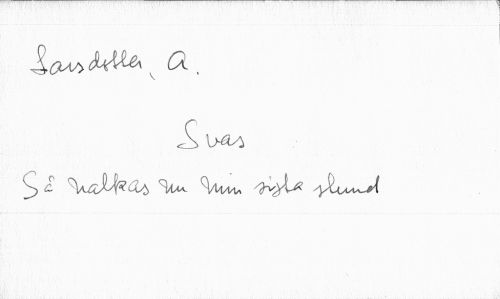 Larsdotter, A.
Svas
Så nalkas nu min sista stund